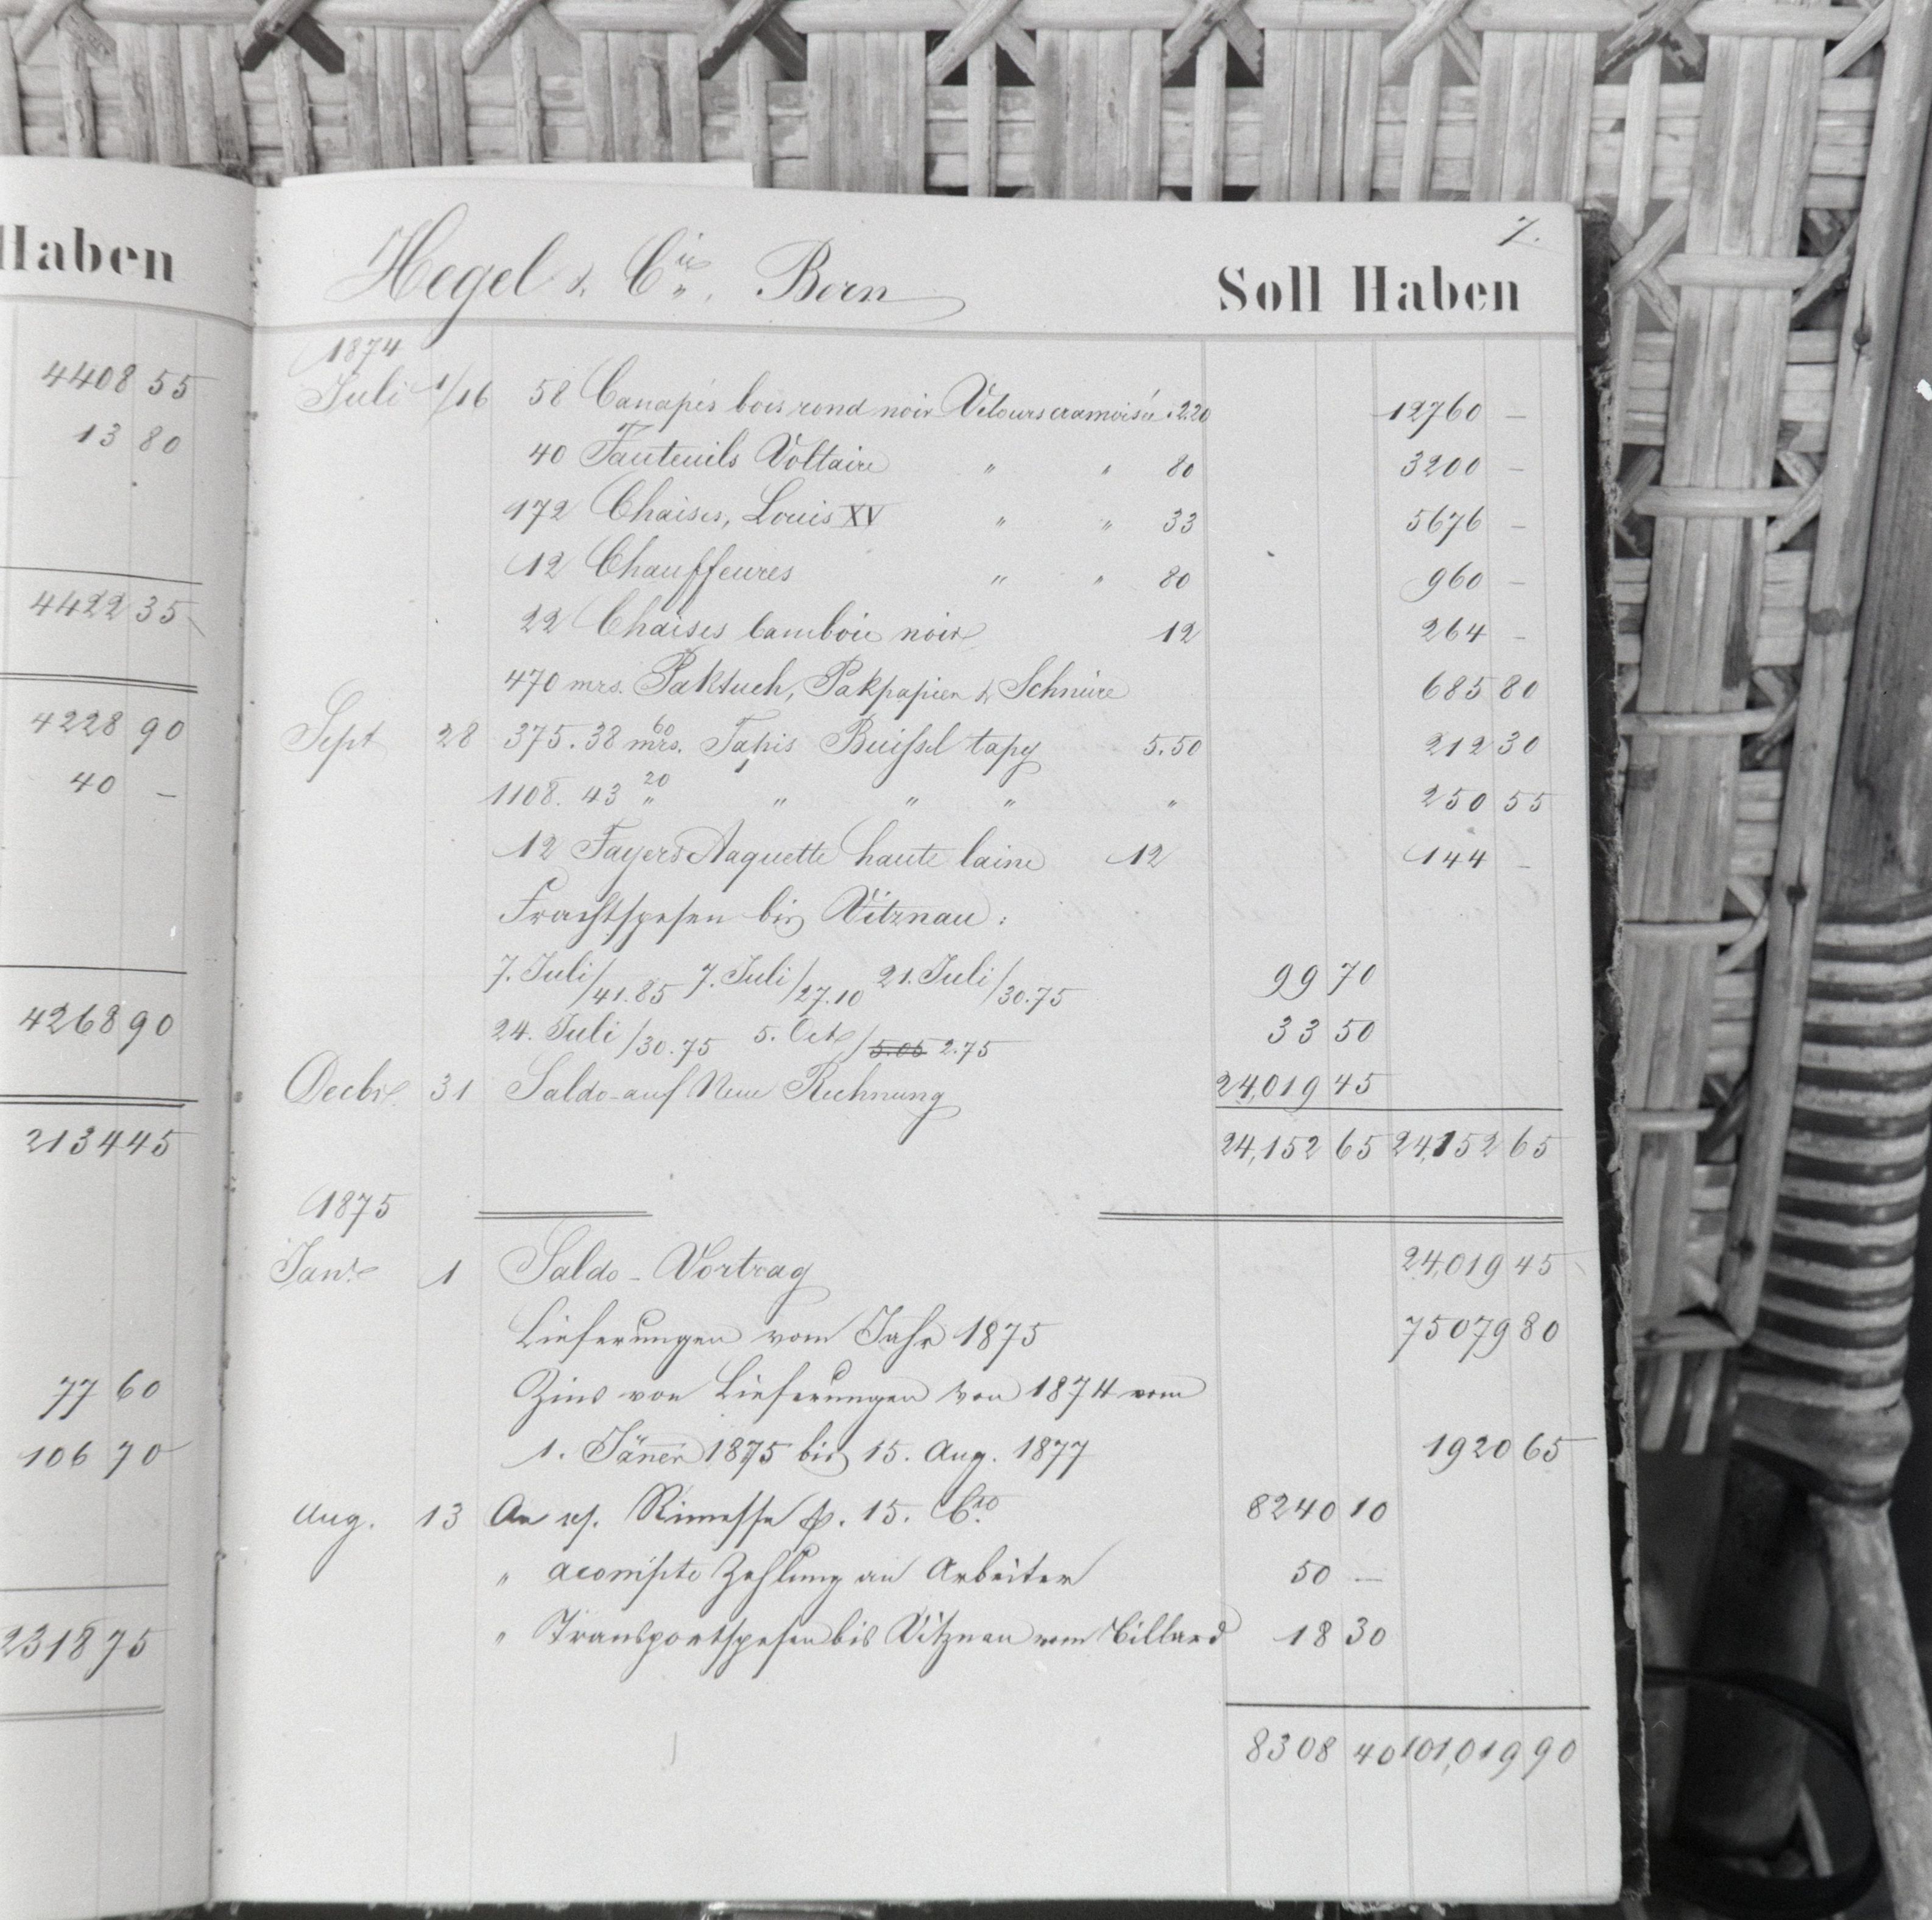 Haben
4408 55
13 80
4422 35
4228 90
40 –
4268 90
2134 45
77 60
106 70
2318 75
7.
Hegel & Cie, Bern Soll Haben
1874
Juli 1/16 58 Canapés bois rond noir Velours cramoisie 220 12760 –
40 Fauteuils Voltaire " " 80 3200 –
172 Chaises, Louis XV " " 33 5676 –
12 Chauffeures " " 80 960 –
22 Chaises noir 12 264 –
470 mrs. Paktuch, Pakpapier & Schnüre 685 80
Sept 28 375. 38 60 mrs. Tapis tapy 5.50 212 30
1108. 43 20 " " " " " 250 55
12 haute laine 12 144 –
Frachtspesen bis Vitznau:
7. Juli/41.85 7. Juli/27.10 21. Juli/30.75 99 70
24. Juli/30.75 5. Oct/5.05 2.75 33 50
Decbr. 31 Saldo auf Neue Rechnung 24,019 45
24,152 65 24,152 65
1875
Janr. 1 Saldo-Vortrag 24,019 45
Lieferungen vom Jahr 1875 75079 80
Zins von Lieferungen von 1874 vom
1. Jäner 1875 bis 15. Aug. 1877 1920 65
Aug. 13 An Rimesse p. 15. Cto 8240 10
" acompte Zahlung an Arbeiter 50 –
" Transportspesen bis Vitznau vom Billard 18 30
8308 40 101,019 90